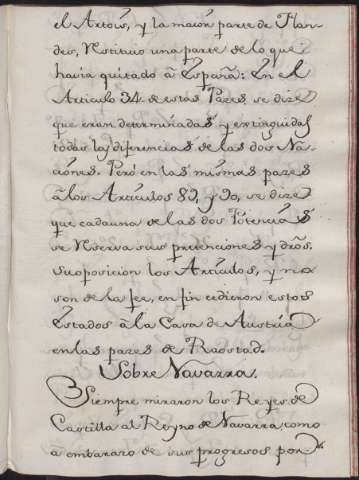 el Artois, y la maior parte de Flan-
des, Restituio una parte de lo que
havia quitado â España: En el
Articulo 34. de estas Pazes se dize
que eran determinadas y extinguidas
todas las diferencias de las dos Na-
ciones. Però en las mismas pazes
â los Articulos 89, y 90, se dize
que cada una de las dos Potencias
se Reserva sus pretenciones y dros.
su oposicion los Articulos, y
son de la fee, en fin cedieron estos
Estados â la Casa de Austria
en las pazes de Raostad.
Sobre Navarra.
Siempre miraron los Reyes de
Castilla al Reyno de Navarra, como
â embarazo de sus progresos por